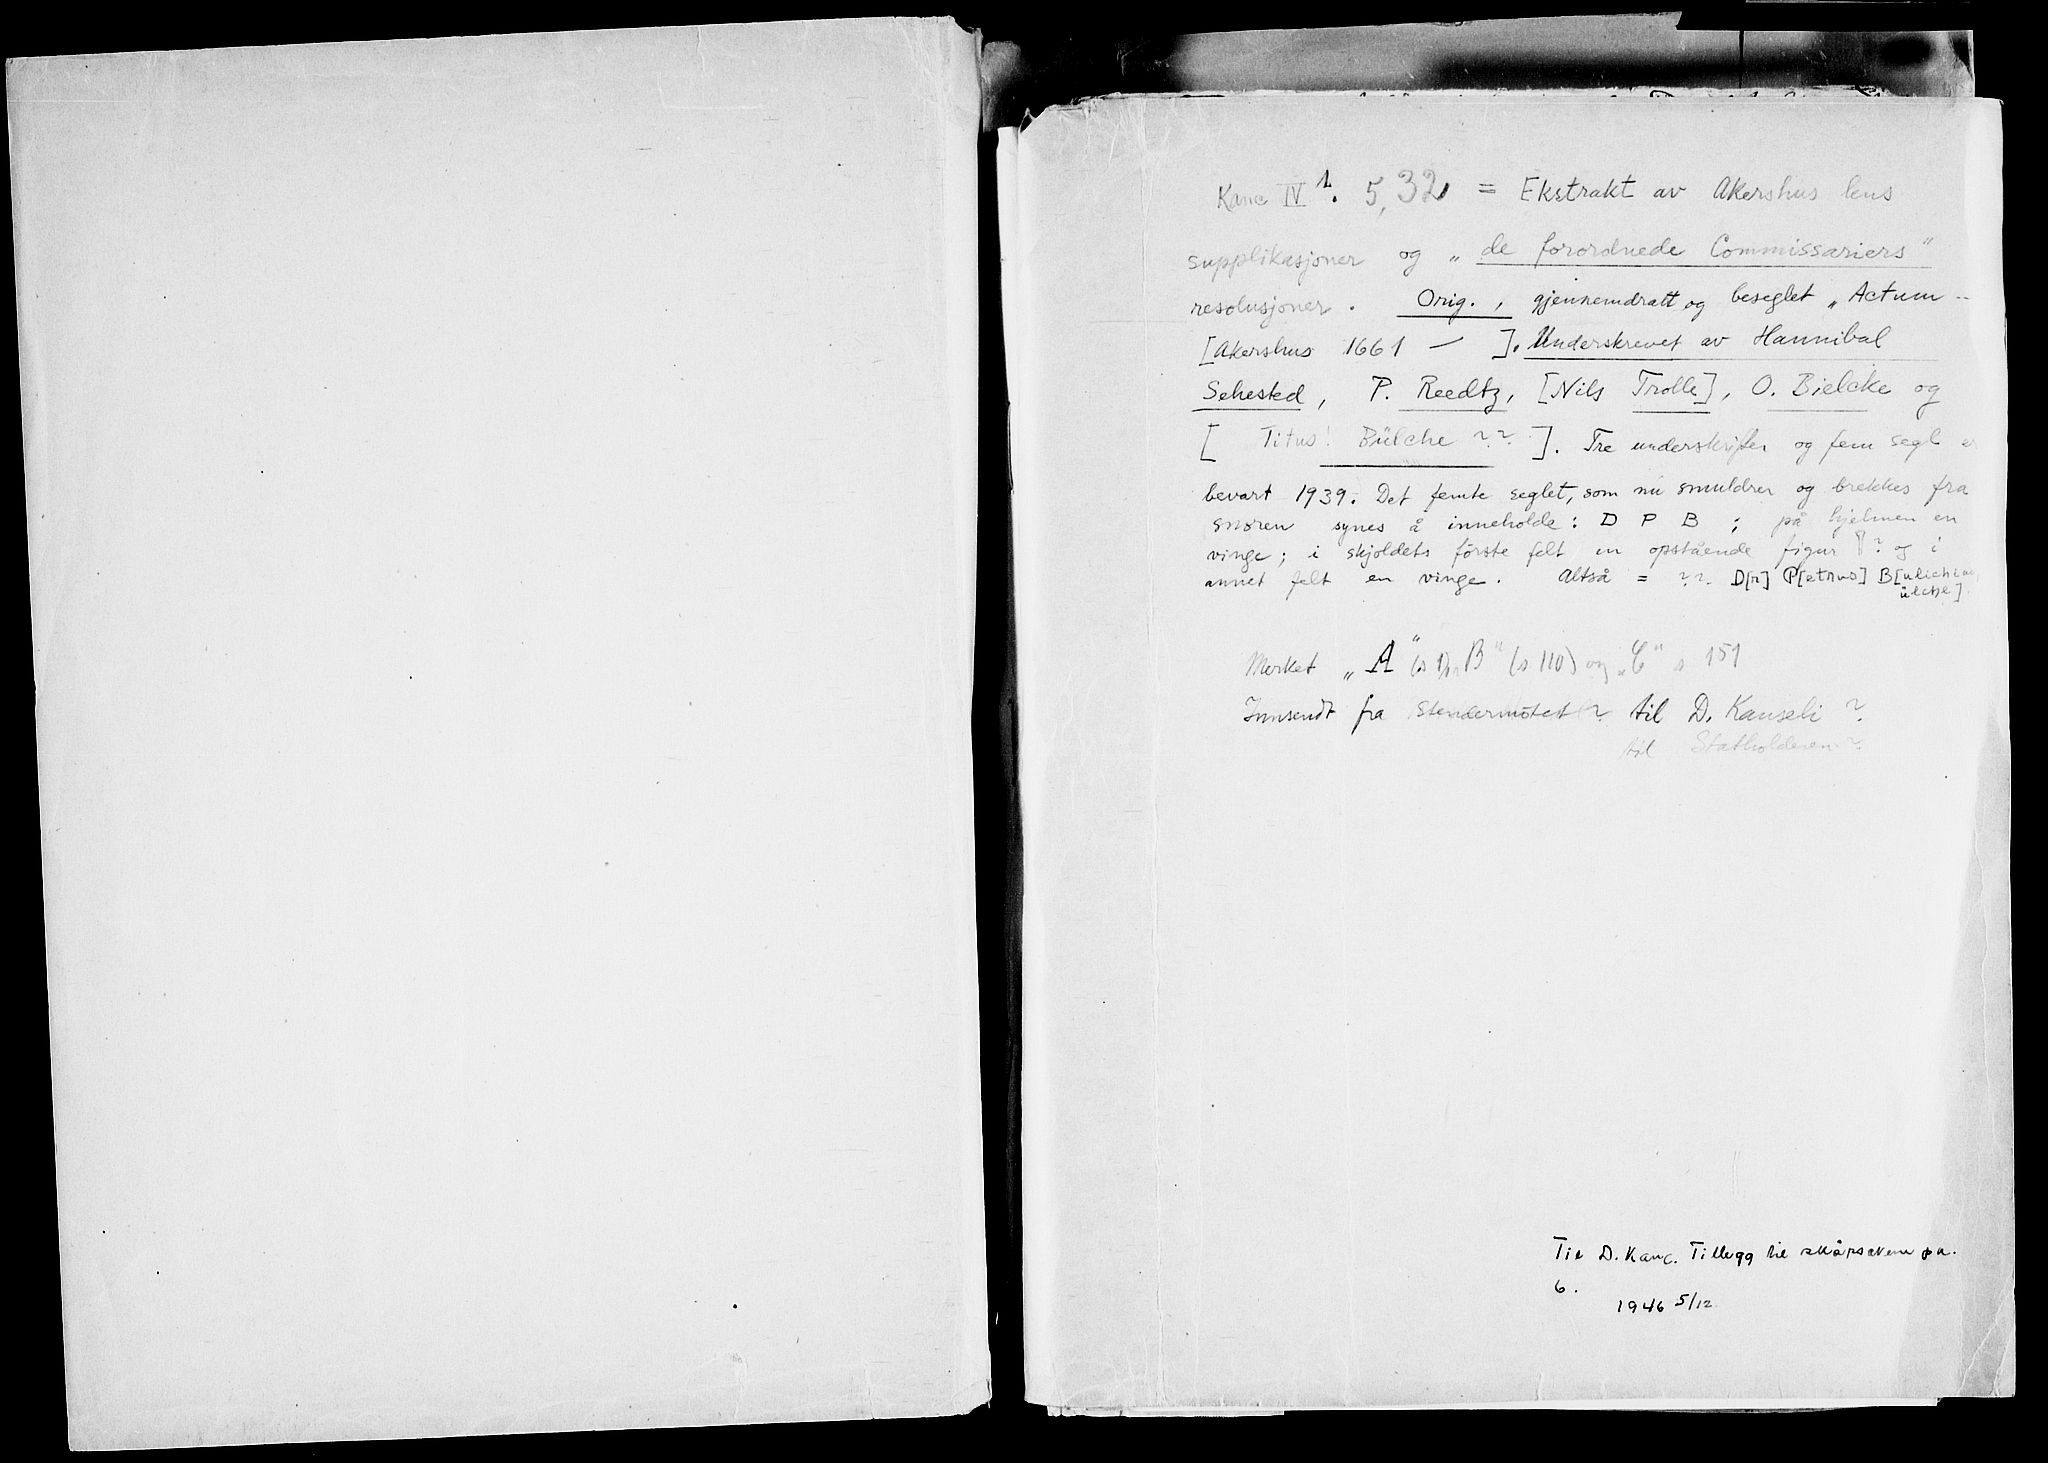 Kanc IV 1. 5,32 = Ekstrakt av Akershus lens
supplikasjoner og „de forordnede Commissariers"
resolusjoner. Orig., gjennemdratt og beseglet „Actum --
[Akershus 1661 — ]. Underskrevet av Hannibal
Sehested, P. Reedtz, [Nils Trolle], O. Bielcke og
[ Titus! Bülche ?? ]. Tre underskrifter og fem segl er
bevart 1939. Det femte seglet, som nu smuldrer og brekkes fra
snoren synes å inneholde: D P B ; på hjelmen en
vinge; i skjoldets første felt en opstående figur ? og i
annet felt en vinge. Altså = ?? D[r] P[etrus] B[ulichius,
ülche].
Merket „A" (s 1), „B" (s 110) og „C" s 151
Innsendt fra Stendermötet? til D. Kanseli ?
til Statholderen?
Til D. Kanc. Tillegg til skåpsakene pk.
6.
1946 5/12